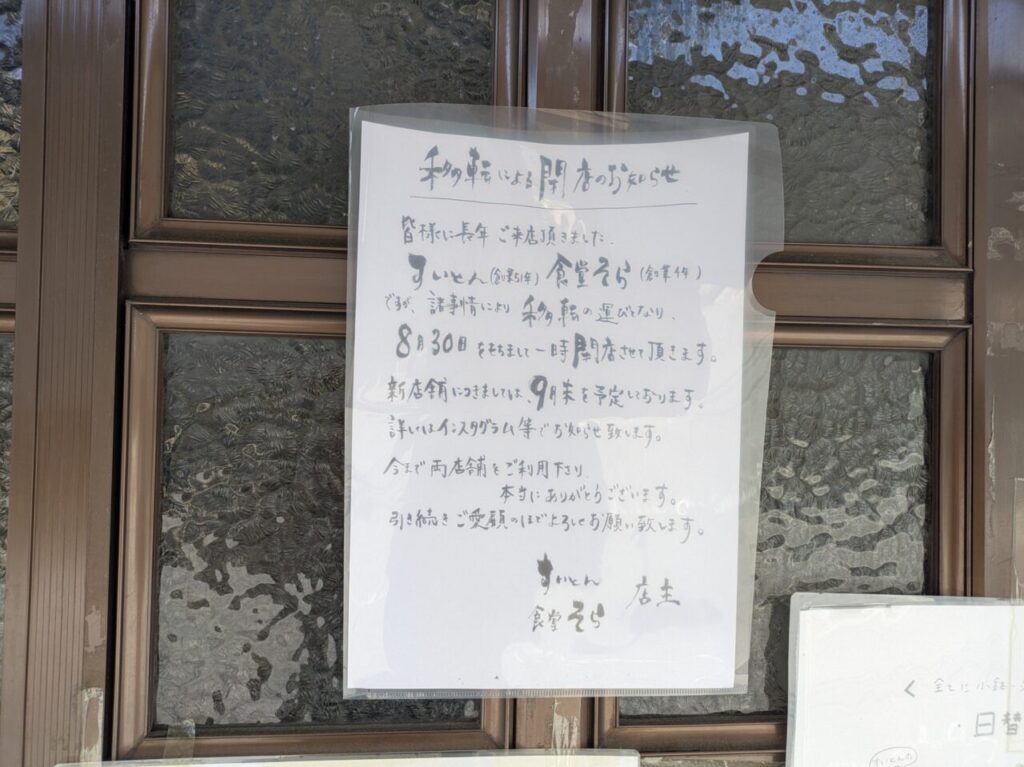 移転による閉店のお知らせ
皆様に長年ご来店頂きました、
すいとん(創業51年) 食堂そら(創業4年)
ですが、諸事情により移転の運びとなり、
8月30日をもちまして一時閉店させて頂きます。
新店舗につきましては、9月末を予定しております。
詳しいはインスタグラム等でお知らせ致します。
今まで両店舗をご利用下さり
本当にありがとうございます。
引き続きご愛顧のほどよろしくお願い致します。
すいとん
食堂そら 店主
く 全てに小鉢
日替
すいとんの